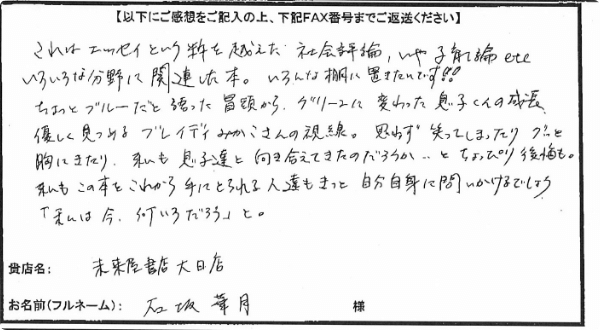 【以下にご感想をご記入の上、下記FAX番号までご返送ください】
これは エッセイという粋を越えた 社会評論、いや子育て論 etc
いろいろな分野に関連した本。いろんな棚に置きたいです!!
ちょっとブルーだと語った冒頭から、グリーンに変わった息子くんの成長、
優しく見つめる ブレイディみかこさんの視線。思わず笑ってしまったり グッと
胸にきたり、私も息子達と向き合えてきたのだろうか…と ちょっぴり後悔も。
私もこの本をこれから手にとられる人達もきっと 自分自身に問いかけるでしょう
「私は今、何いろだろう」と。
貴店名: 未来屋書店 大日店
お名前(フルネーム): 石坂華月 様